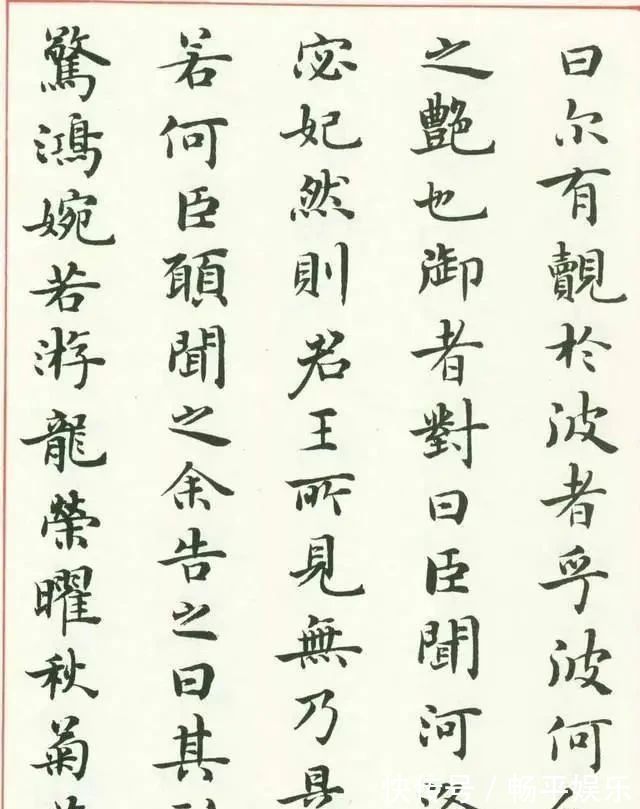 曰尔有覿於彼者乎彼何
之艷也御者對曰臣聞河
宓妃然則君王所見無乃是
若何臣願聞之余告之曰其
驚鴻婉若游龍榮曜秋菊
快传号/畅平娱乐